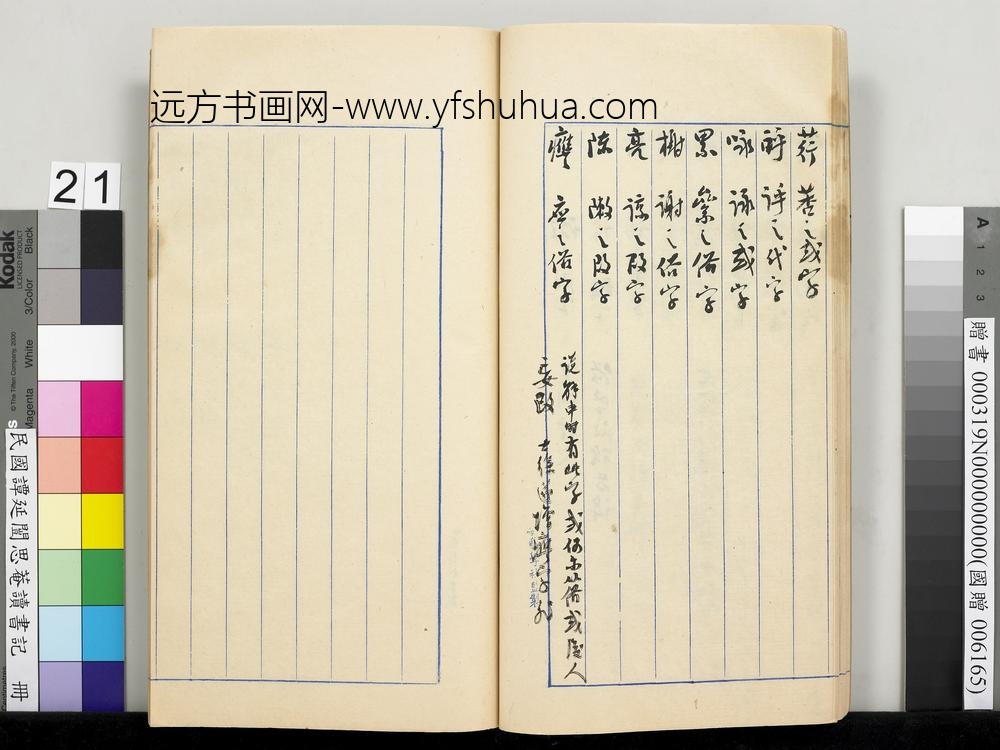 远方书画网-www.yfshuhua.com
荇 莕之或字
之代字
咏 詠之或字
累 絫之俗字
榭 謝之俗字
亮 諒之叚字
之叚字
應之俗字
说解中时有此字或俗或後人
妄改 大徐
21
Kodak
LICENSED PRODUCT
Black
3/Color
White
Magenta
© The Tiffen Company, 2000
Centimetres
民國譚延闓思菴讀書記 冊
A 1 2 3
贈書 000319N000000000(國贈 006165)